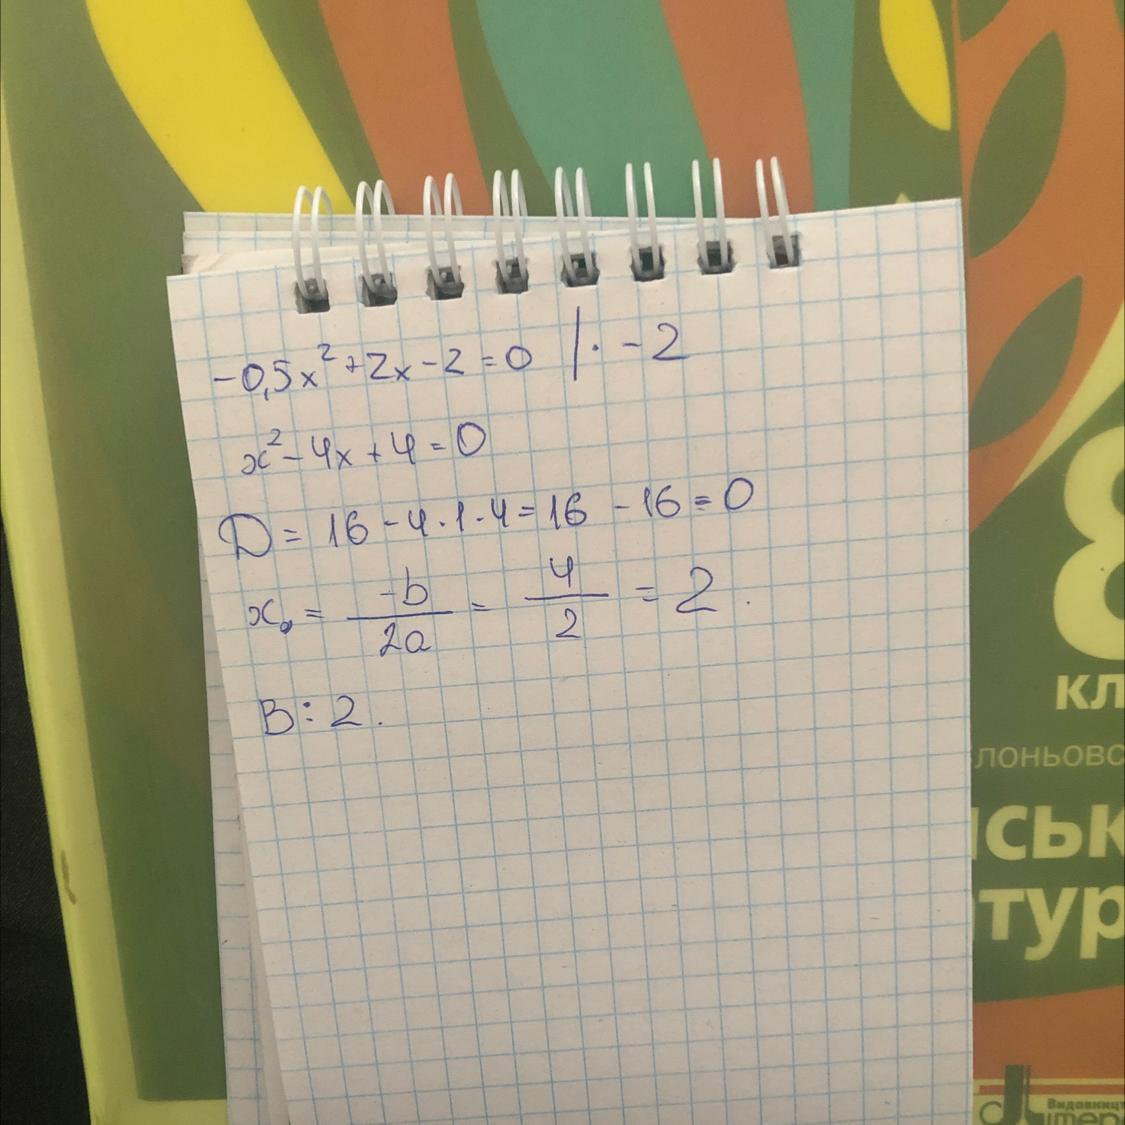 -0,5x² + 2x - 2 = 0 | · -2
x² - 4x + 4 = 0
D = 16 - 4 · 1 · 4 = 16 - 16 = 0
x₀ = -b/2a = 4/2 = 2.
В: 2.
8
кл
лоньовс
ськ
тур
Видавницт
Літера